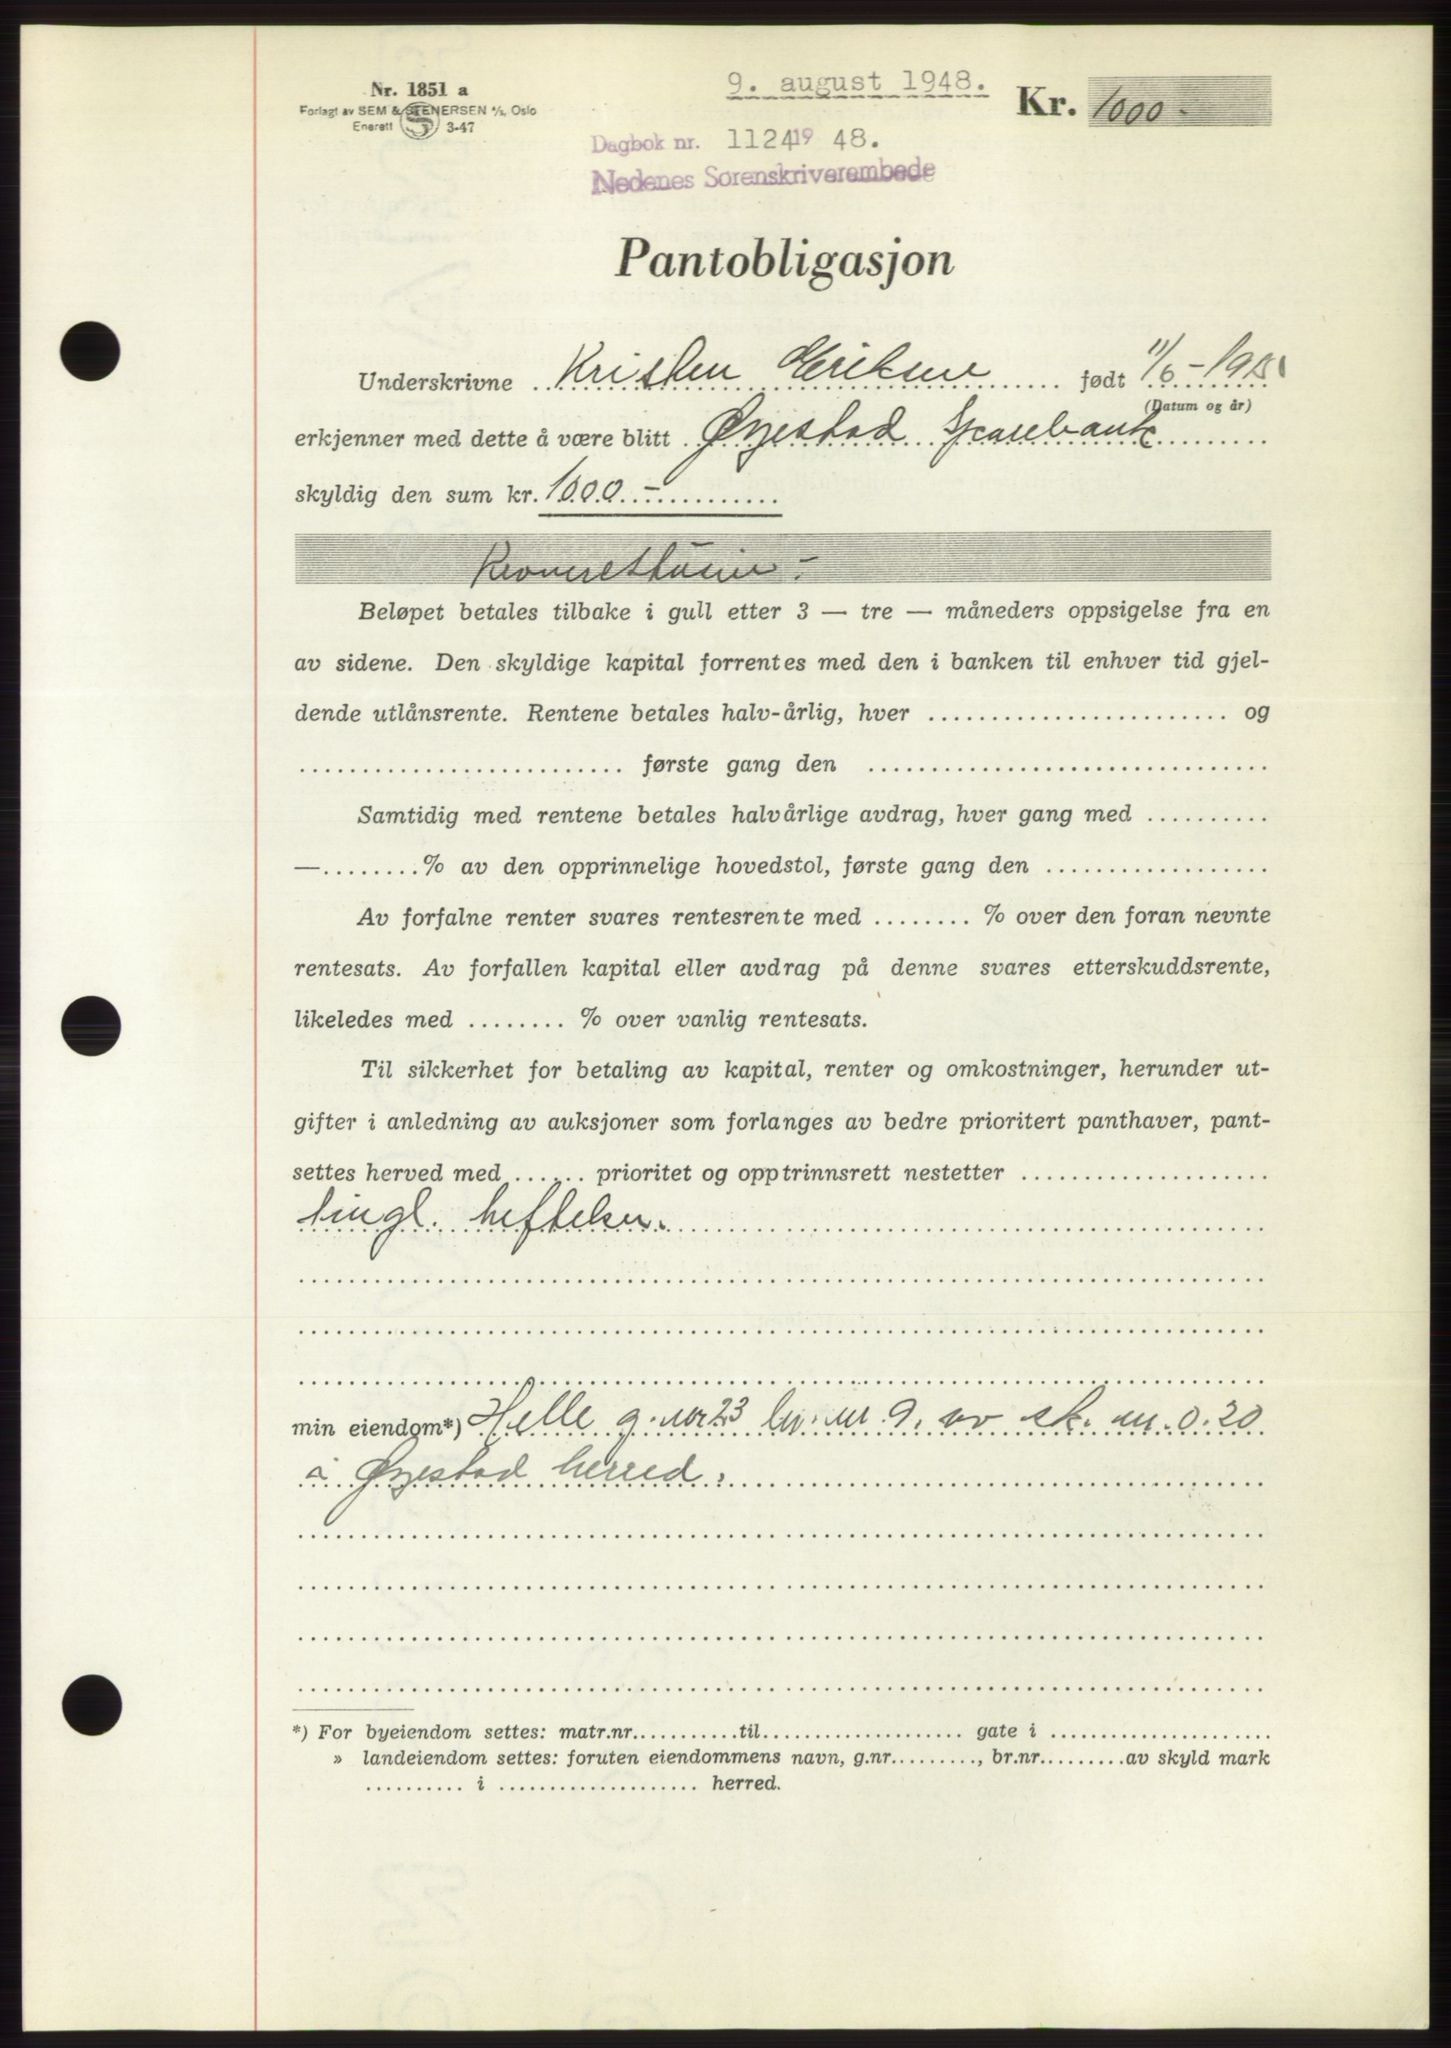 Nr. 1851 a
Forlagt av SEM & STENERSEN A/S, Oslo
Enerett 3-47
9. august 1948.
Kr. 1000 -
Dagbok nr. 1124 19 48.
Nedenes Sorenskriverembede
Pantobligasjon
Underskrivne Kristen Eriksen født 11/6-19
(Datum og år)
erkjenner med dette å være blitt Øyestad Sparebank
skyldig den sum kr. 1000 -
Beløpet betales tilbake i gull etter 3 — tre — måneders oppsigelse fra en
av sidene. Den skyldige kapital forrentes med den i banken til enhver tid gjel-
dende utlånsrente. Rentene betales halv-årlig, hver ........................ og
.......................... første gang den ................................
Samtidig med rentene betales halvårlige avdrag, hver gang med ..........
—........% av den opprinnelige hovedstol, første gang den ..................
Av forfalne renter svares rentesrente med ........ % over den foran nevnte
rentesats. Av forfallen kapital eller avdrag på denne svares etterskuddsrente,
likeledes med ........ % over vanlig rentesats.
Til sikkerhet for betaling av kapital, renter og omkostninger, herunder ut-
gifter i anledning av auksjoner som forlanges av bedre prioritert panthaver, pant-
settes herved med ...... prioritet og opptrinnsrett nestetter ....................
tingl. heftelser.
min eiendom*) Helle g.nr 23 br.nr 9. av sk. m. 0.20
i Øyestad herred.
*) For byeiendom settes: matr.nr...........til.................... gate i ......................
» landeiendom settes: foruten eiendommens navn, g.nr........., br.nr.........av skyld mark
.......... i .................... herred.